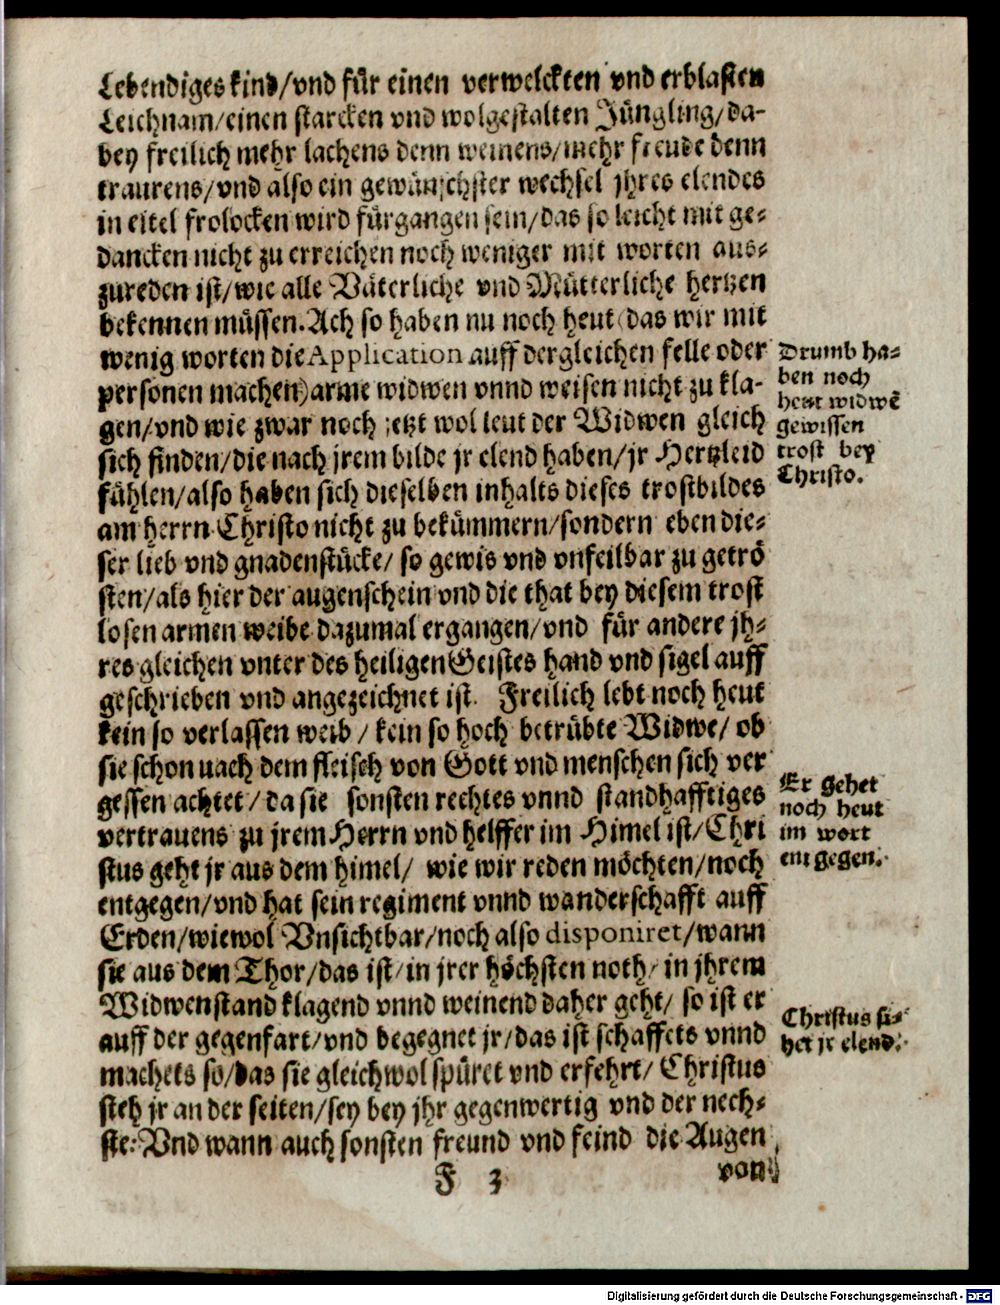 Lebendiges kind/vnd für einen verwelckten vnd erblasten
Leichnam/einen starcken vnd wolgestalten Jüngling/da-
bey freilich mehr lachens denn weinens/mehr freude denn
traurens/vnd also ein gewünschster wechsel jhres elendes
in eitel frolocken wird fürgangen sein/das so leicht mit ge-
dancken nicht zu erreichen noch weniger mit worten aus-
zureden ist/wie alle Väterliche vnd Mütterliche hertzen
bekennen müssen. Ach so haben nu noch heut (das wir mit
wenig worten die Application auff dergleichen felle oder
personen machen) arme widwen vnnd weisen nicht zu kla-
gen/vnd wie zwar noch jetzt wol leut der Widwen gleich
sich finden/die nach jrem bilde jr elend haben/jr Hertzleid
fühlen/also haben sich dieselben inhalts dieses trostbildes
am herrn Christo nicht zu bekümmern/sondern eben die-
ser lieb vnd gnadenstücke/ so gewis vnd vnfeilbar zu getrö
sten/als hier der augenschein vnd die that bey diesem trost
losen armen weibe dazumal ergangen/vnd für andere jh-
res gleichen vnter des heiligen Geistes hand vnd sigel auff
geschrieben vnd angezeichnet ist. Freilich lebt noch heut
kein so verlassen weib / kein so hoch betrübte Widwe/ ob
sie schon nach dem fleisch von Gott vnd menschen sich ver
gessen achtet / da sie sonsten rechtes vnnd standhafftiges
vertrauens zu jrem Herrn vnd helffer im Himel ist/Chri
stus geht jr aus dem himel/ wie wir reden möchten/noch
entgegen/vnd hat sein regiment vnnd wanderschafft auff
Erden/wiewol Vnsichtbar/noch also disponiret/wann
sie aus dem Thor/das ist/in jrer höchsten noth/in jhrem
Widwenstand klagend vnnd weinend daher geht/ so ist er
auff der gegenfart/vnd begegnet jr/das ist schaffets vnnd
machets so/das sie gleichwol spüret vnd erfehrt/ Christus
steh jr an der seiten/sey bey jhr gegenwertig vnd der nech-
ste: Vnd wann auch sonsten freund vnd feind die Augen
F 3 von
Drumb ha-
ben noch
heut widwē
gewissen
trost bey
Christo.
Er gehet
noch heut
im wort
entgegen.
Christus si-
het jr elend.
Digitalisierung gefördert durch die Deutsche Forschungsgemeinschaft - DFG